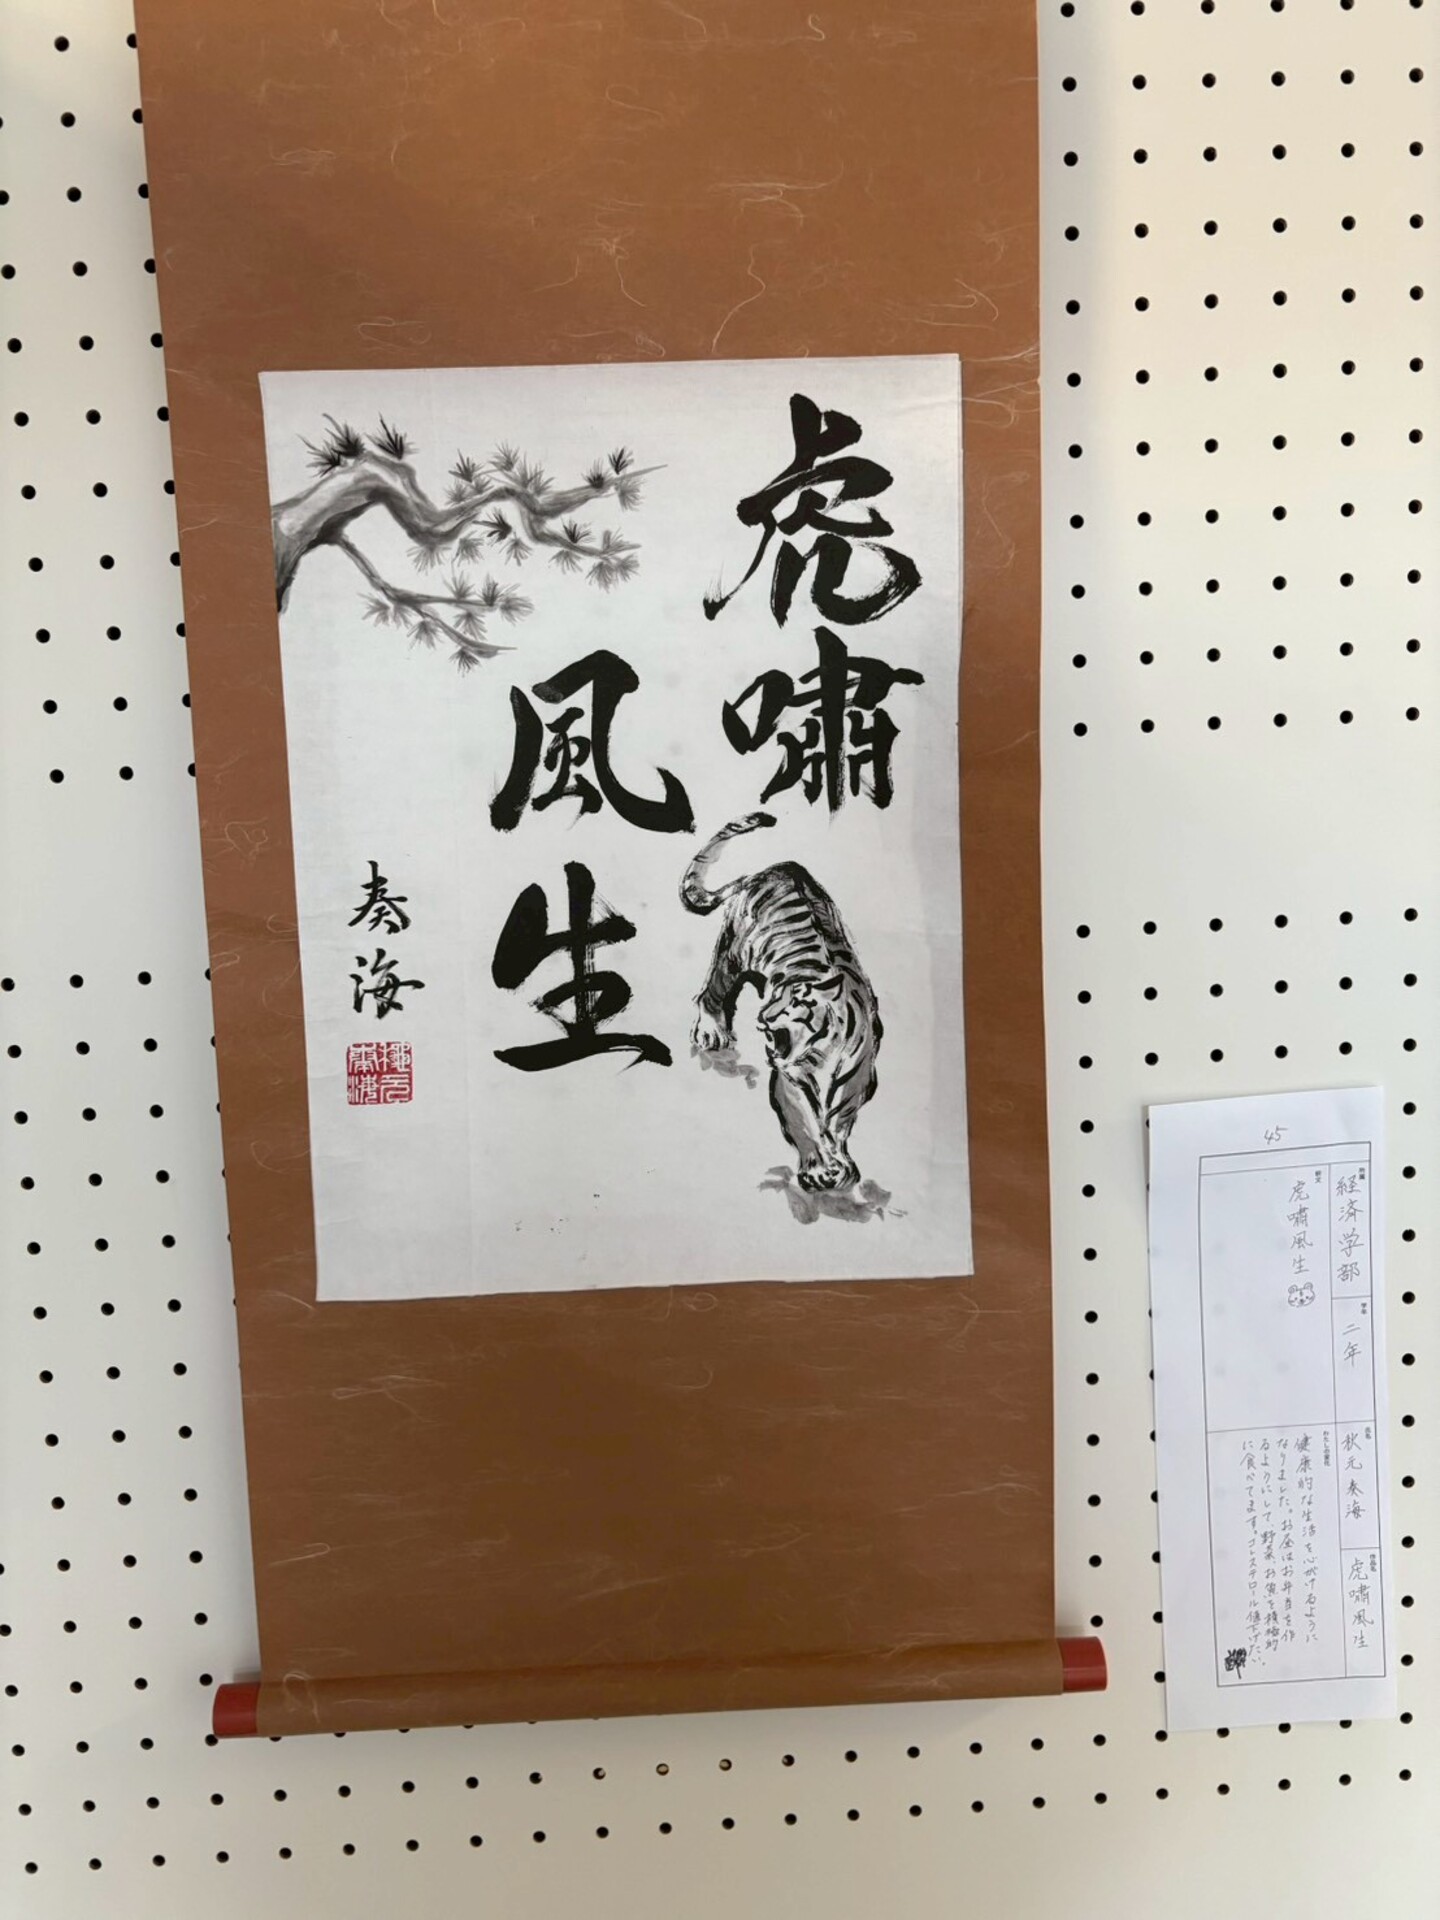 虎嘯
風生
奏海
45
所属
経済学部
学年
二年
氏名
秋元奏海
作品名
虎嘯風生
釈文
虎嘯風生
わたしの変化
健康的な生活を心がけるように
なりました。お昼はお弁当を作
るようにして、野菜、お魚を積極的
に食べてます。コレステロール値下げたい。